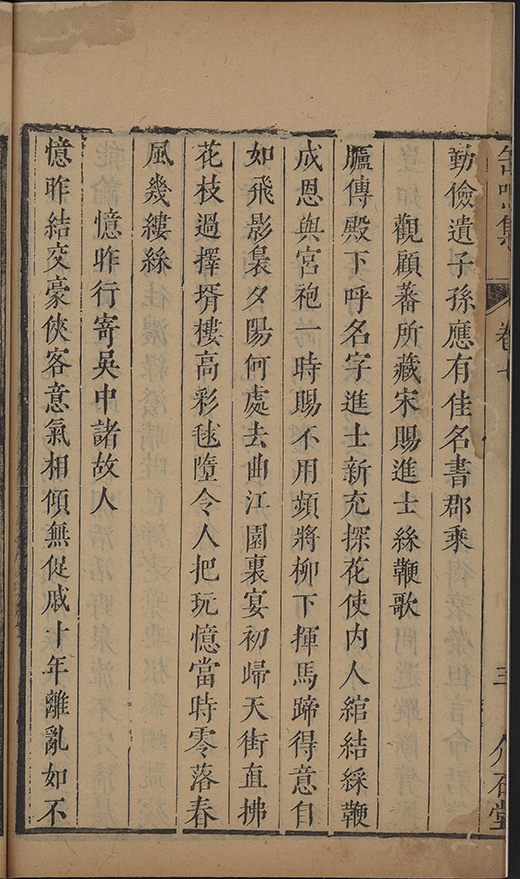 缶鳴集 卷七 三 介石堂
勤儉遺子孫應有佳名書郡乘
觀顧蕃所藏宋賜進士絲鞭歌
臚傳殿下呼名字進士新充探花使内人綰結綵鞭
成恩與宮袍一時賜不用頻將柳下揮馬蹄得意自
如飛影裊夕陽何處去曲江園裏宴初歸天街直拂
花枝過擇壻樓高彩毬墮令人把玩憶當時零落春
風幾縷絲
憶昨行寄吳中諸故人
憶昨結交豪俠客意氣相傾無促戚十年離亂如不